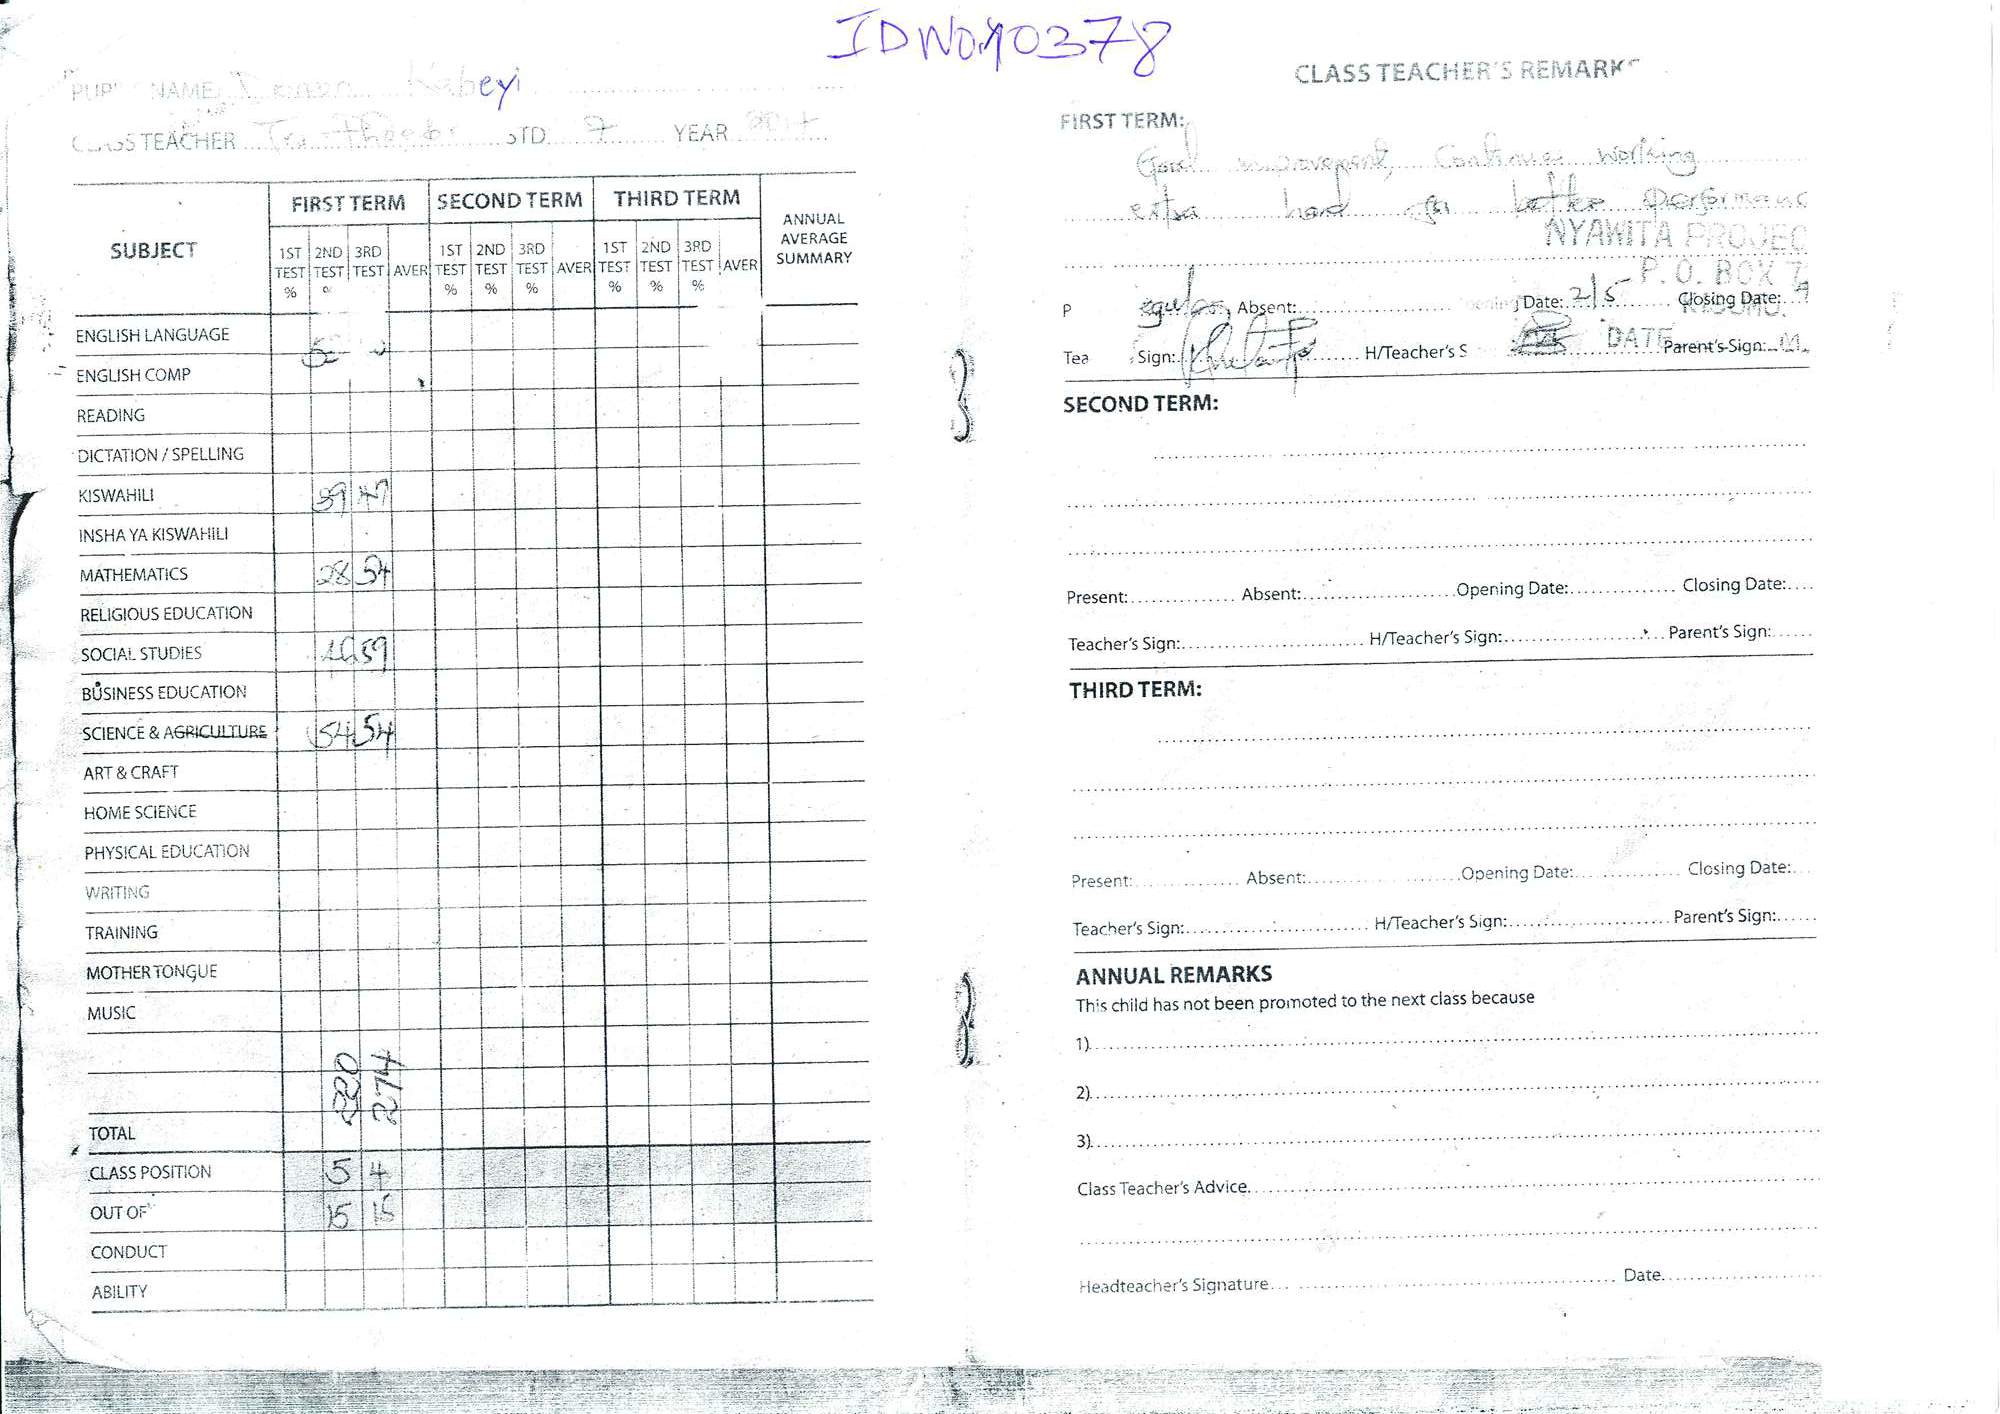 IDNo
PUP NAME Kabeyi
CLASS TEACHER STD 7 YEAR
SUBJECT FIRST TERM SECOND TERM THIRD TERM ANNUAL AVERAGE SUMMARY
1ST TEST % 2ND TEST % 3RD TEST AVER 1ST TEST % 2ND TEST % 3RD TEST % AVER 1ST TEST % 2ND TEST % 3RD TEST % AVER
ENGLISH LANGUAGE
ENGLISH COMP
READING
DICTATION / SPELLING
KISWAHILI 39 47
INSHA YA KISWAHILI
MATHEMATICS 28 54
RELIGIOUS EDUCATION
SOCIAL STUDIES 59
BUSINESS EDUCATION
SCIENCE & AGRICULTURE 54 54
ART & CRAFT
HOME SCIENCE
PHYSICAL EDUCATION
WRITING
TRAINING
MOTHER TONGUE
MUSIC
TOTAL 220 274
CLASS POSITION 5 4
OUT OF 15 15
CONDUCT
ABILITY
CLASS TEACHER'S REMARKS
FIRST TERM:
Good improvement, Continue working
extra hard for better performanc
NYAWITA PROJEC
P.O. BOX 7
P Absent: Date: 2/5 Closing Date:
KISUMU.
DATE
Tea Sign: H/Teacher's S Parent's Sign:
SECOND TERM:
Present: Absent: Opening Date: Closing Date:
Teacher's Sign: H/Teacher's Sign: Parent's Sign:
THIRD TERM:
Present: Absent: Opening Date: Closing Date:
Teacher's Sign: H/Teacher's Sign: Parent's Sign:
ANNUAL REMARKS
This child has not been promoted to the next class because
1)
2)
3)
Class Teacher's Advice
Headteacher's Signature Date